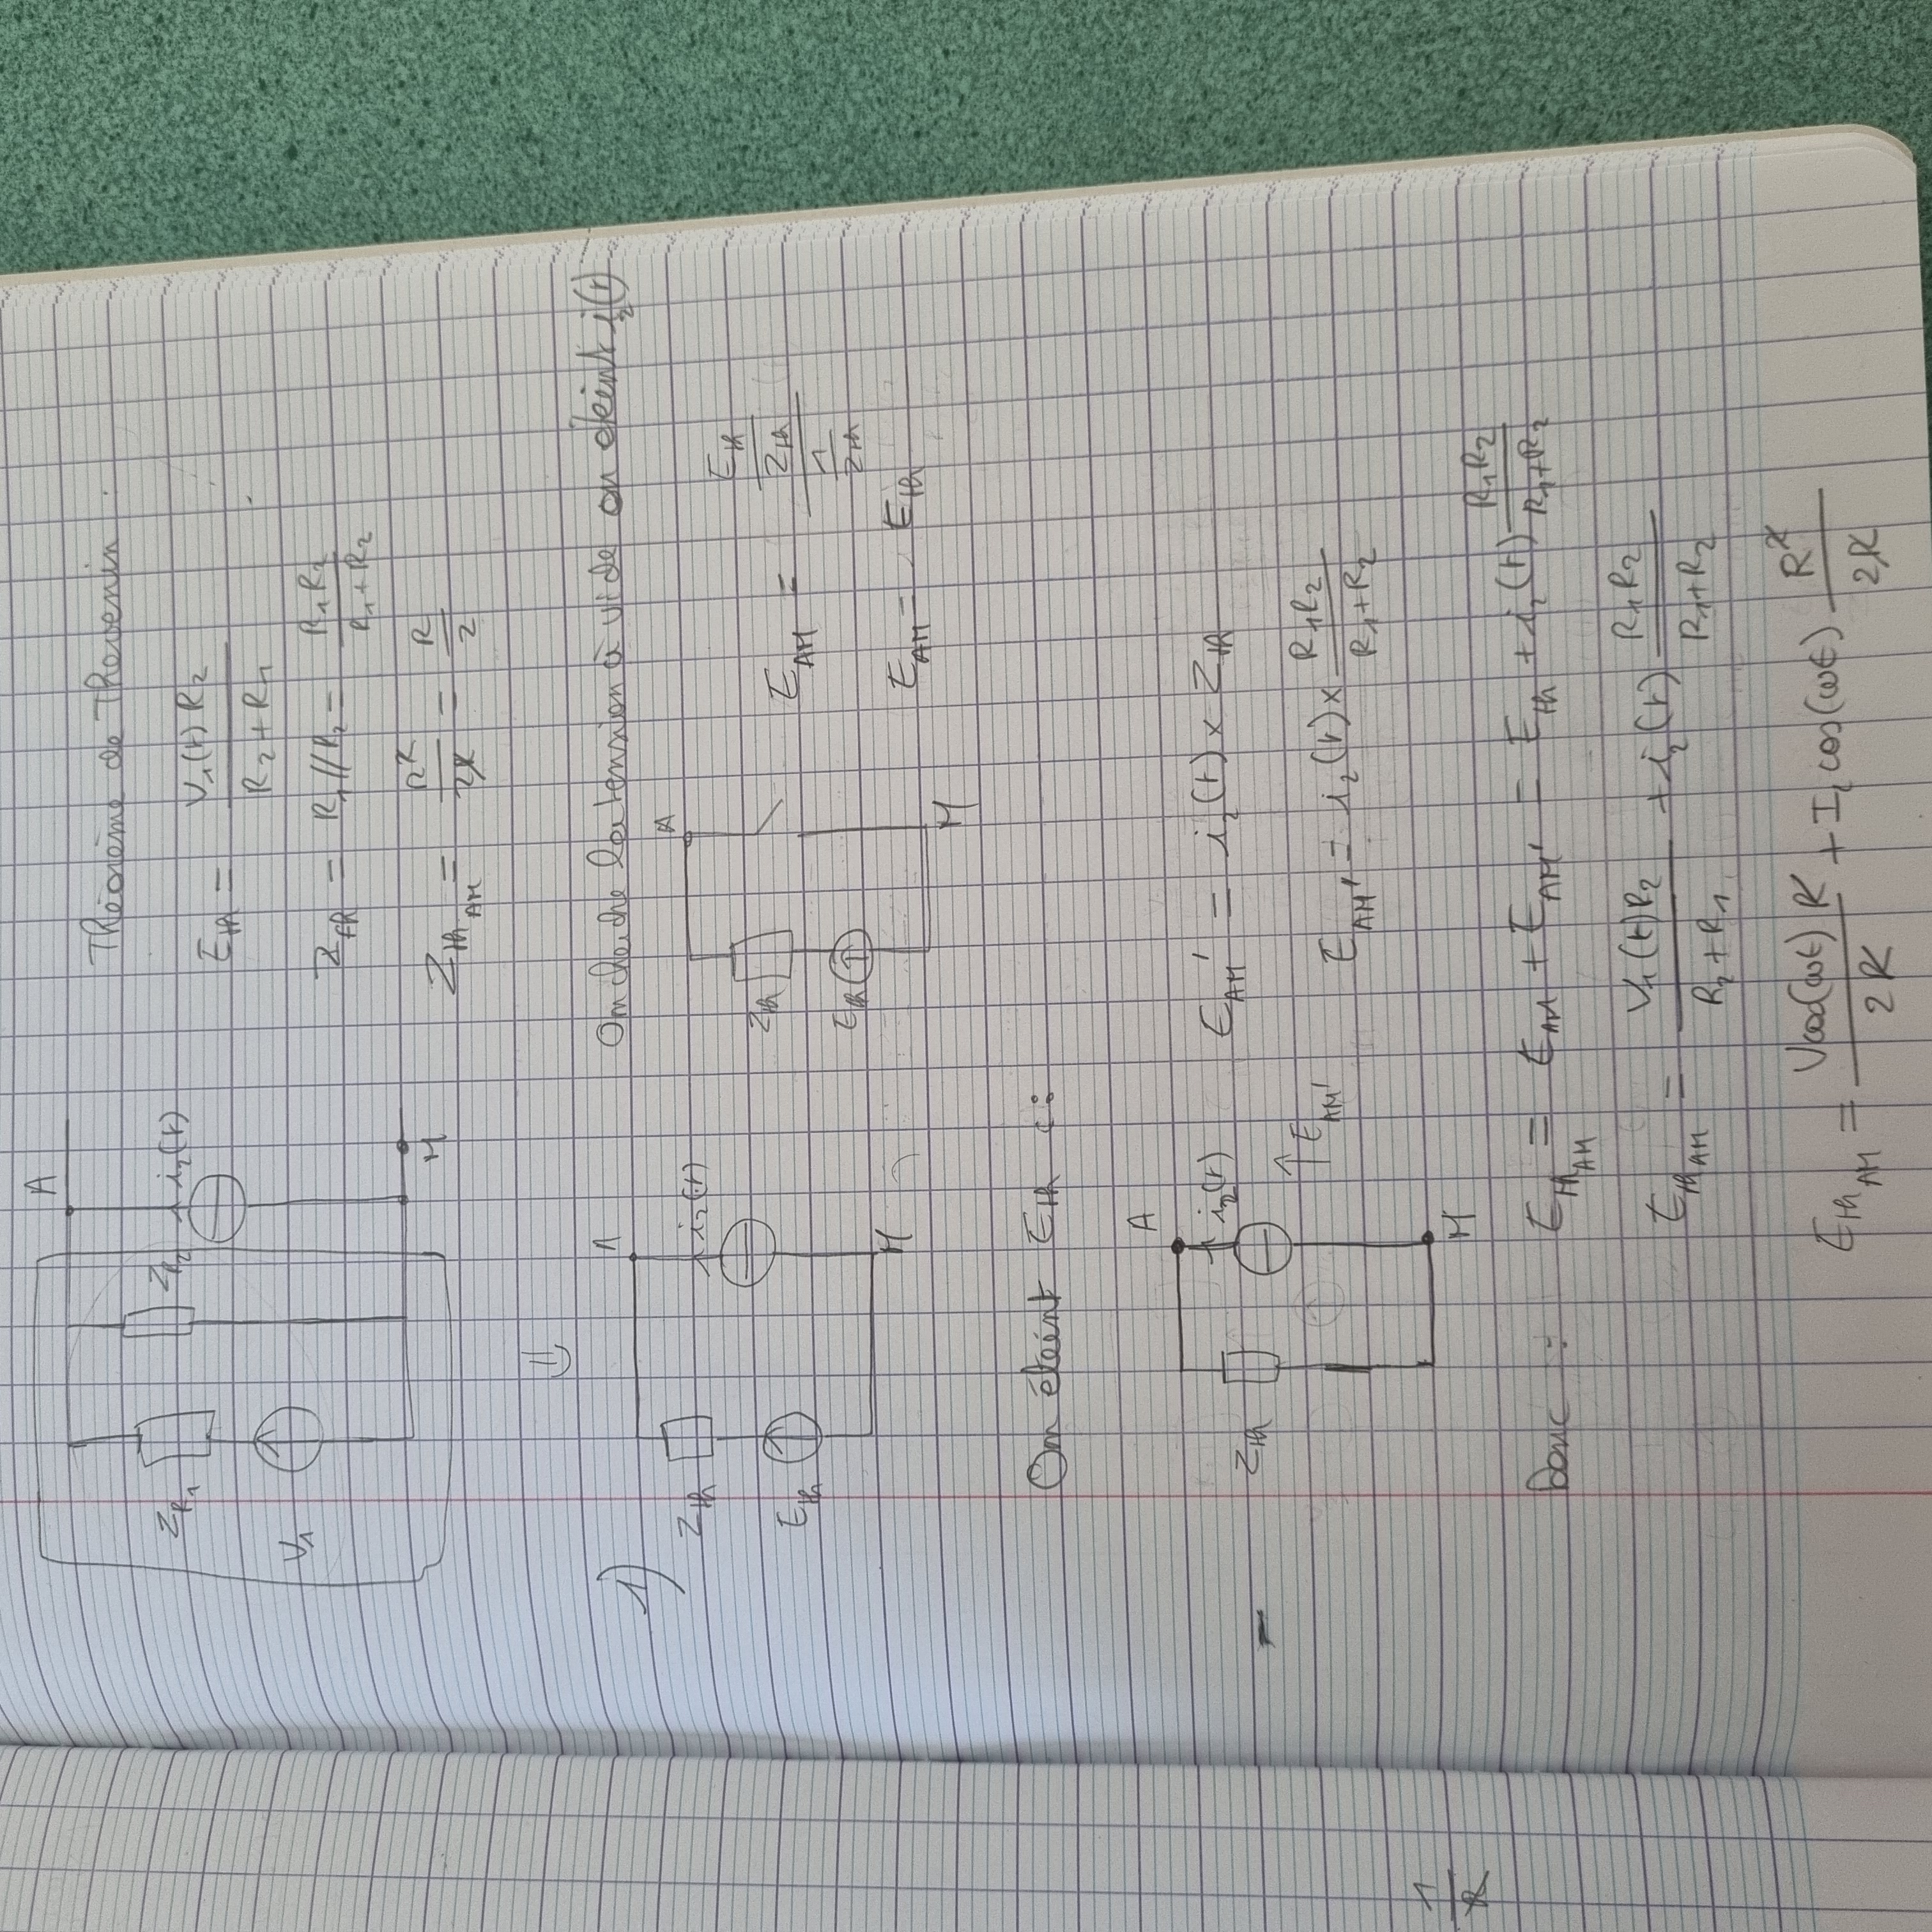 Théorème de Thevenin :
A
Z_R1
Z_R2
i_2(t)
V_1
M
E_th = V_1(t) R_2 / (R_2 + R_1)
Z_th = R_1 // R_2 = R_1 R_2 / (R_1 + R_2)
Z_th_AM = R^2 / 2R = R / 2
1)
On cherche la tension à vide on éteint i_2(t)
A
Z_th
i_2(t)
E_th
M
A
Z_th
E_th
M
E_AM = (E_th / Z_th) / (1 / Z_th)
E_AM = E_th
On éteint E_th :
A
i_2(t)
Z_th
↑ E_AM'
M
E_AM' = i_2(t) × Z_th
E_AM' = i_2(t) × R_1 R_2 / (R_1 + R_2)
Donc : E_th_AM = E_AM + E_AM' = E_th + i_2(t) R_1 R_2 / (R_1 + R_2)
E_th_AM = V_1(t) R_2 / (R_2 + R_1) + i_2(t) R_1 R_2 / (R_1 + R_2)
cos(ωt) R / 2R
cos(ωt) R^2 / 2R
1 / R